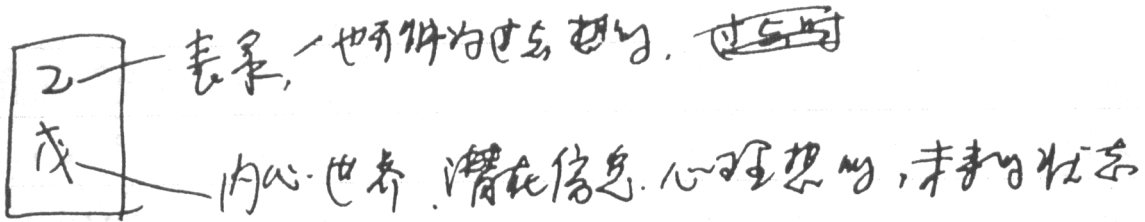 乙 表象,也可解为过去想的.过去时
戊 内心世界.潜在信息.心理想的,未来的状态